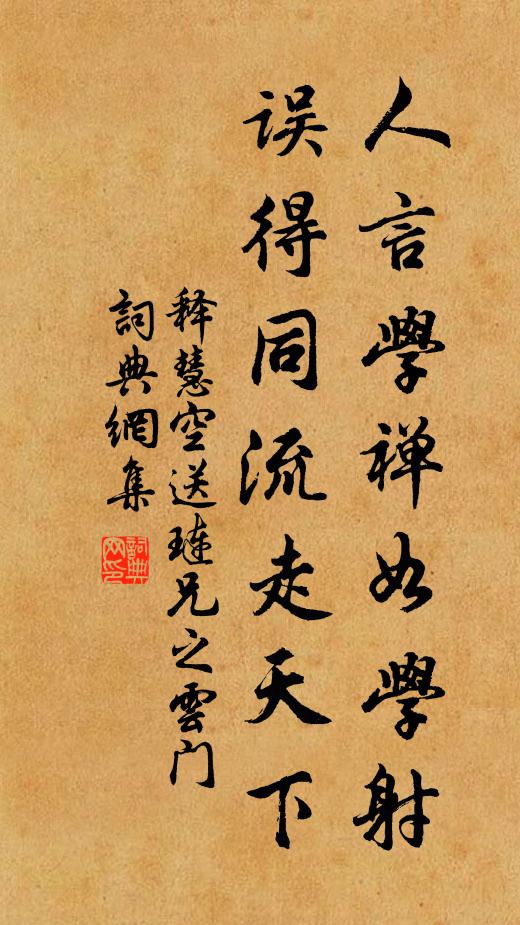 人言學禅如學射
误得同流走天下
释慧空送琏兄之雲门
詞典網集
詞典网印